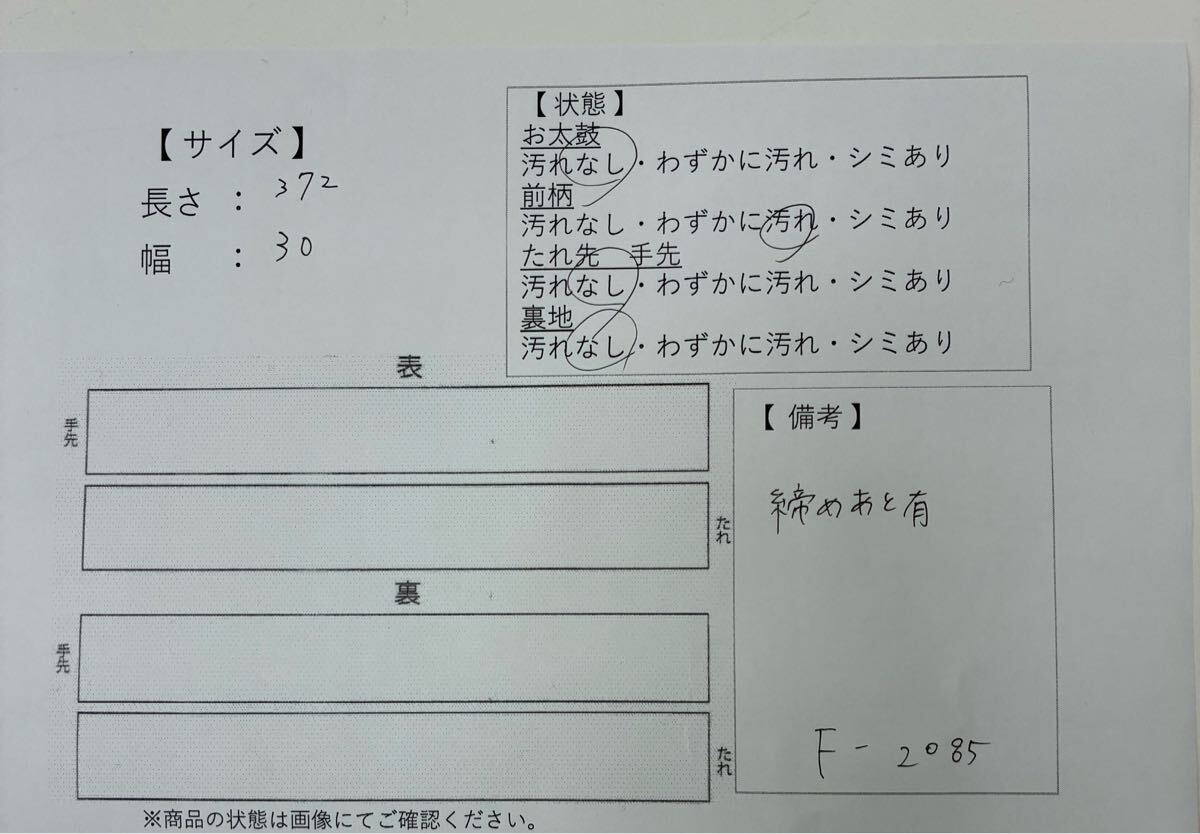 【サイズ】
長さ : 372
幅 : 30
【状態】
お太鼓
汚れなし・わずかに汚れ・シミあり
前柄
汚れなし・わずかに汚れ・シミあり
たれ先 手先
汚れなし・わずかに汚れ・シミあり
裏地
汚れなし・わずかに汚れ・シミあり
表
手先
たれ
裏
手先
たれ
【備考】
締めあと有
F-2085
※商品の状態は画像にてご確認ください。